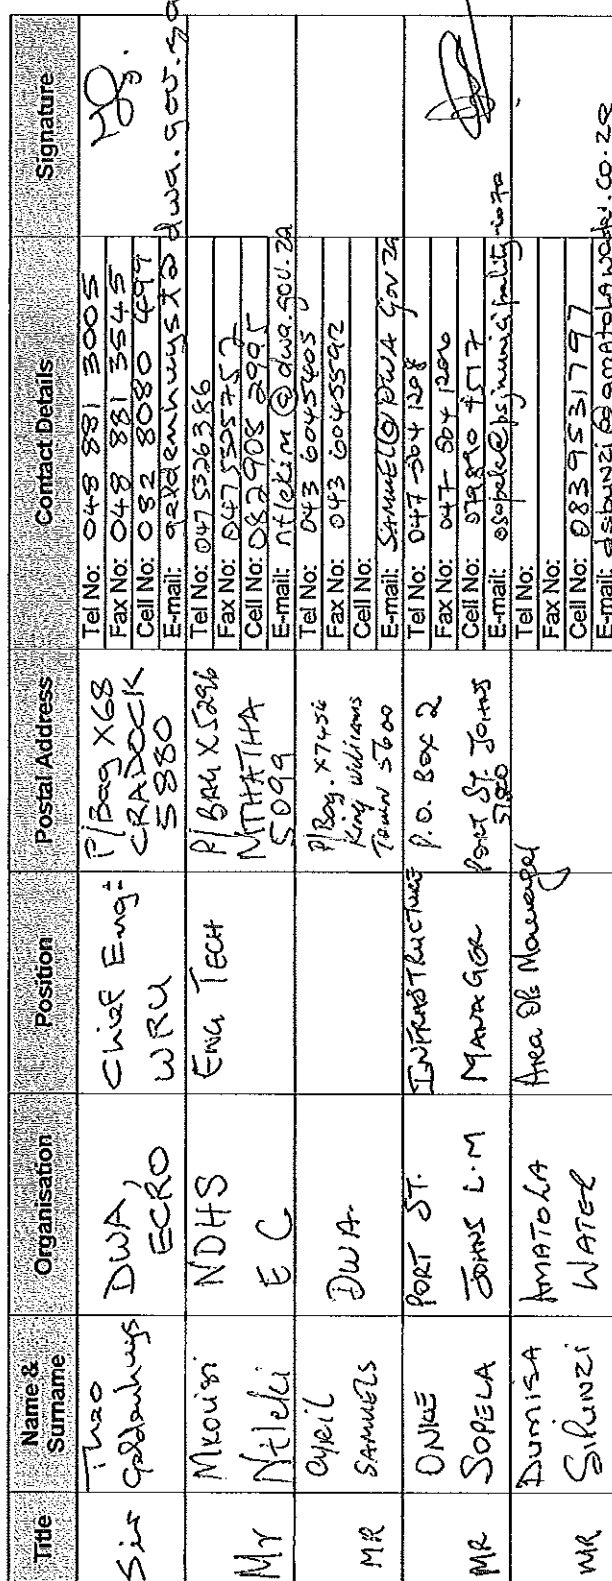 Title
Name & Surname
Organisation
Position
Postal Address
Contact Details
Signature
Sir
Theo
Geldenhuys
DWA,
ECRO
Chief Eng:
WRU
P/Bag X68
CRADOCK
5880
Tel No: 048 881 3005
Fax No: 048 881 3545
Cell No: 082 8080 499
E-mail: geldenhuyst@dwa.gov.za
Mr
Mxovisi
Ntleki
NDHS
E C
ENG TECH
P/BAG X5296
MTHATHA
5099
Tel No: 047 5326386
Fax No: 047 5325757
Cell No: 082 908 2995
E-mail: ntlekim@dwa.gov.za
MR
Cyril
SAMUELS
DWA.
P/Bag. X7456
King Williams
Town 5600
Tel No: 043 6045405
Fax No: 043 6045592
Cell No:
E-mail: SAMUEL@DWA Gov za
MR
ONKE
SOPELA
PORT ST.
JOHNS L.M
INFRASTRUCTURE
MANAGER
P.O. Box 2
PORT ST JOHNS
5120
Tel No: 047-564 1208
Fax No: 047-564 1206
Cell No:
E-mail:
MR
DUMISA
AMATOLA
WATER
Area Ops Manager
Tel No:
Fax No:
Cell No: 0839531797
E-mail: